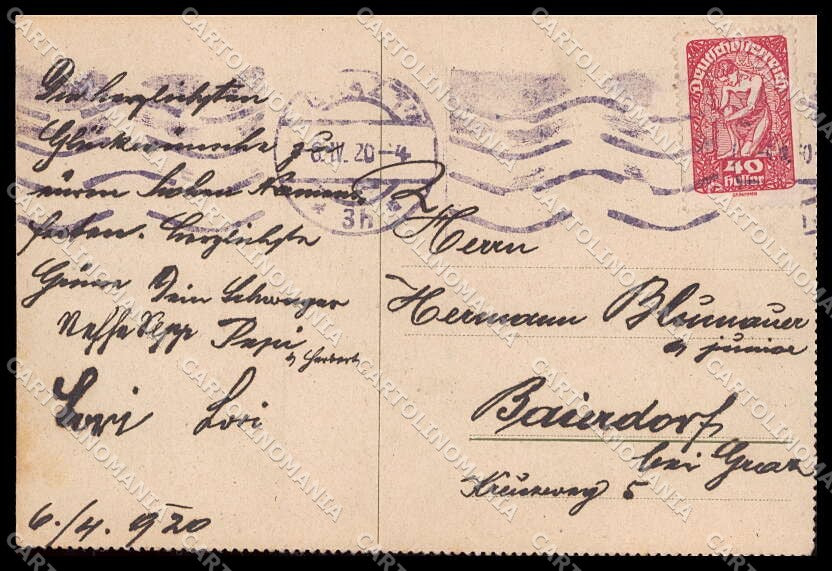 Die herzlichsten
Glückwünsche zu
hohen Namens
festen. Herzlichste
Grüsse Dein Schwager
Neffe Sepp Pepi
u Herbert
Lori
6./4. 920
6.IV.20-4
* 3h *
Deutschösterreich
40
Heller
Herrn
Hermann Blumauer
junior
Baierdorf
bei Graz
Kreuzweg 5
CARTOLINOMANIA